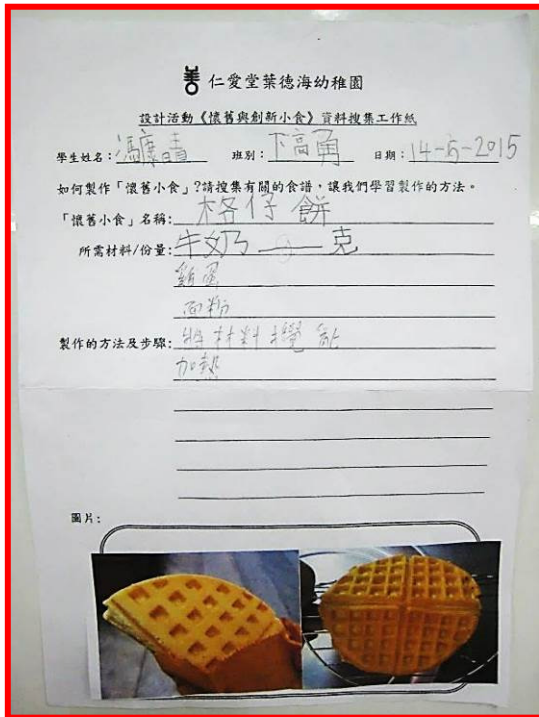 仁愛堂葉德海幼稚園
設計活動《懷舊與創新小食》資料搜集工作紙
學生姓名：馮慷晴 班別：下高勇 日期：14-5-2015
如何製作「懷舊小食」?請搜集有關的食譜，讓我們學習製作的方法。
「懷舊小食」名稱：格仔餅
所需材料/份量：牛奶——克
雞蛋
面粉
製作的方法及步驟：將材料攪
加熱
圖片：